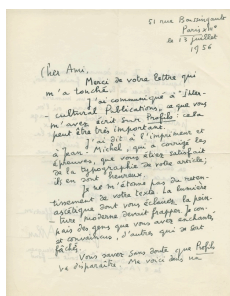 51 rue Boussingault
Paris XIIIe
le 13 juillet
1956
Cher Ami,
Merci de votre lettre qui
m'a touché.
J'ai communiqué à Inter-
cultural Publications, ce que vous
m'avez écrit sur Profils : cela
peut être très important.
J'ai dit à l'imprimeur et
à Jean Michel, qui a corrigé les
épreuves, que vous étiez satisfait
de la typographie de votre article;
ils en sont heureux.
Je ne m'étonne pas du reten-
tissement de votre texte. La lumière
ascétique dont vous éclairez la pein-
ture moderne devait frapper. Je con-
nais des gens que vous avez enchantés
et convaincus, d'autres qui se sont
fâchés.
Vous savez sans doute que Profils
va disparaître. Me voici dans un